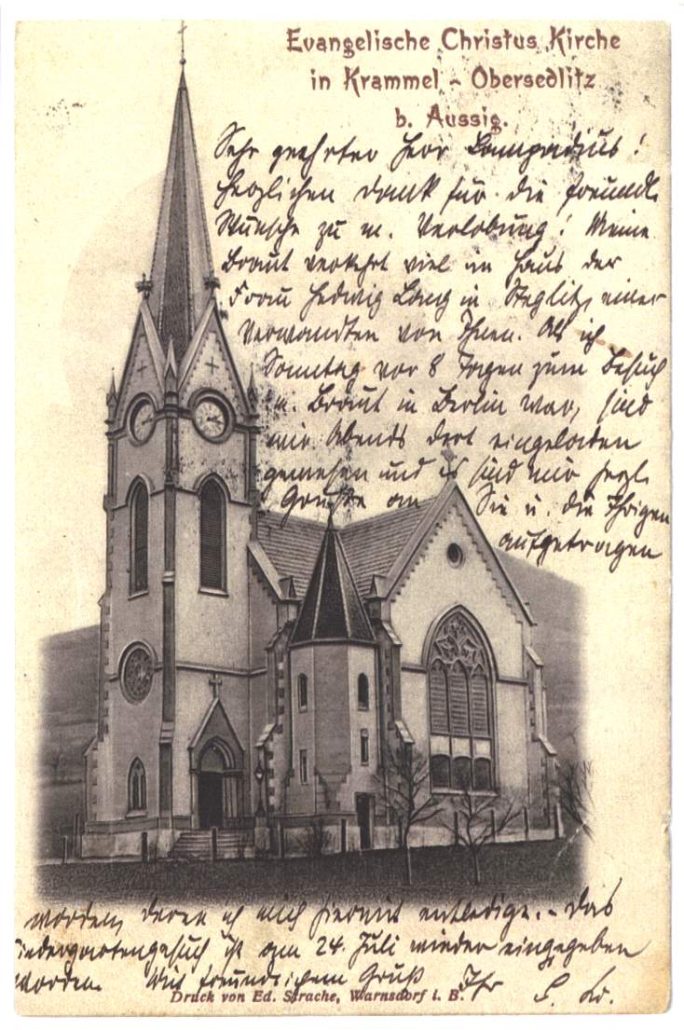 Evangelische Christus Kirche
in Krammel - Obersedlitz
b. Aussig.
Sehr geehrter Herr Lampadius!
Herzlichen Dank für die freundl.
Wünsche zu m. Verlobung! Meine
Braut verkehrt viel im Haus der
Frau Hedwig Lang in Steglitz, einer
Verwandten von Ihnen. Als ich
Sonntag vor 8 Tagen zum Besuch
m. Braut in Berlin war, sind
wir Abends dort eingeladen
gewesen und es sind mir herzl.
Grüße an Sie u. die Ihrigen
aufgetragen
worden, deren ich mich hiermit entledige. - Das
gesuch ist am 24. Juli wieder eingegeben
worden. Mit freundlichem Gruß Ihr
Druck von Ed. Strache, Warnsdorf i. B.